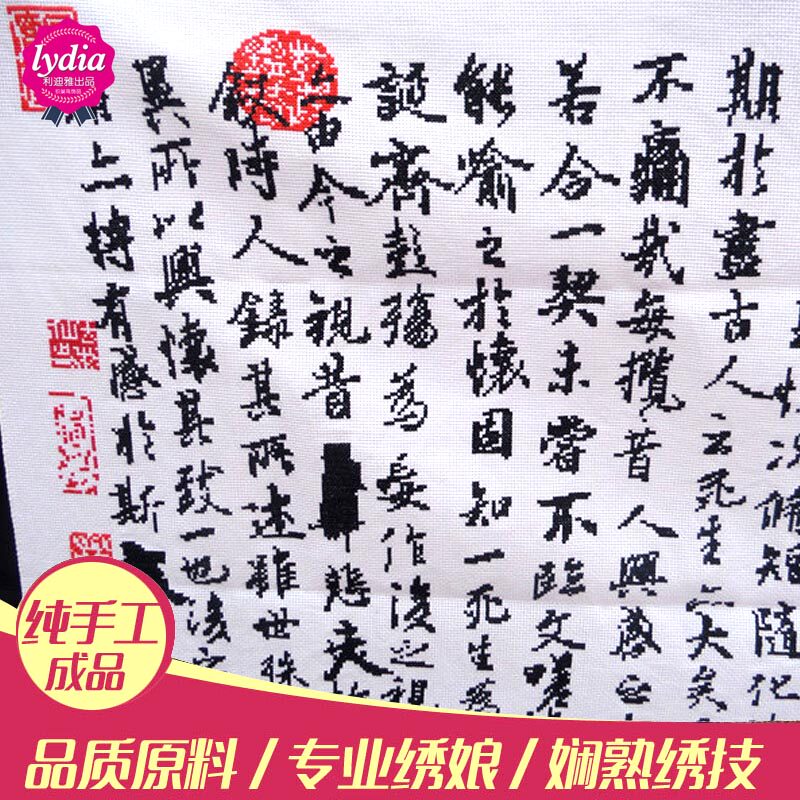 lydia
利迪雅出品
况脩短隨化
期於盡古人云死生亦大矣
不痛哉每攬昔人興感之
若合一契未嘗不臨文嗟
能喻之於懷固知一死生為
誕齊彭殤為妄作後之視
亦由今之視昔
悲夫
敘時人錄其所述雖世殊
異所以興懷其致一也後之
亦將有感於斯
纯手工
成品
品质原料/专业绣娘/娴熟绣技